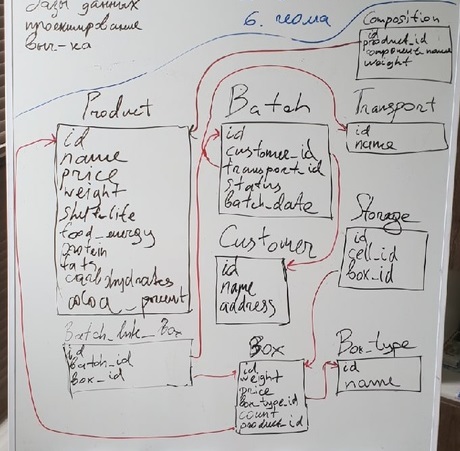 базы данных
проектирование
6. чеома
Composition
id
product_id
component_name
weight
Product
id
name
price
weight
shelf_life
food_energy
protein
fats
carbihydrates
cocoa_precent
Batch
id
customer_id
transport_id
status
batch_date
Transport
id
name
Customer
id
name
address
Storage
id
cell_id
box_id
Batch_link_Box
id
batch_id
box_id
Box
id
weight
price
box_type_id
count
product_id
Box_type
id
name